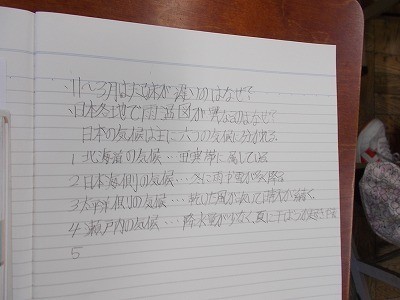 11〜3月は天気が違うのはなぜ?
日本各地で雨温図が異なるのはなぜ?
日本の気候は主に六つの気候に分かれる
1 北海道の気候…亜寒帯に属している
2 日本海側の気候…冬に雨や雪が多く降る
3 太平洋側の気候…乾いた風がふいて晴れが続く
4 瀬戸内の気候…降水量が少なく夏に干ばつ
5